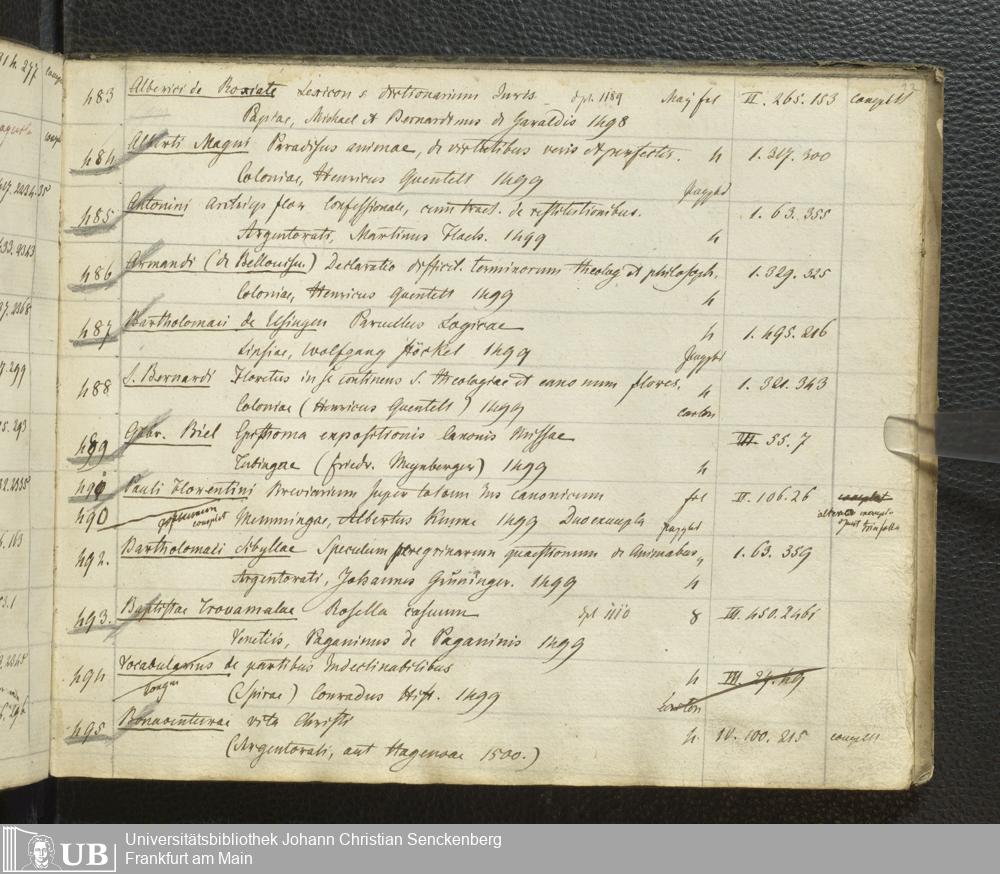 483 Alberici de Roxiate Lexicon s. dictionarium Juris dpl. 1189 Maj fol II. 265. 153 complett
Papiae, Michael et Bernardinus de Garaldis 1498
484 Alberti Magni Paradisus animae, de virtutibus veris et perfectis. 4 1. 317. 300
Coloniae, Henricus Quentell 1499
485 Antonini Archiep flor Confessionale, cum tract. de restitutionibus. 1. 63. 355
Argentorati, Martinus Flach. 1499 4
486 Armandi (de Bellovisu.) Declaratio difficil. terminorum theolog et philosoph. 1. 329. 325
Coloniae, Henricus Quentell 1499 4
487 Bartholomaei de Usingen Parvulus Logicae 4 1. 495. 216
Lipsiae, Wolfgang Stöckel 1499
488 S. Bernardi Floretus in se continens S. theologiae et canonum flores. 4 1. 321. 343
Coloniae (Henricus Quentell) 1499 carton
489 Gabr. Biel Epithoma expositionis Canonis Missae III 55. 7
Tubingae (friedr. Meynberger) 1499 4
491 Pauli Florentini Breviarium super totum Jus canonicum fol II. 106. 26 complet
490 complet Memmingae, Albertus Kunne 1499 Duo exempla
492. Bartholomaei Sibyllae Speculum peregrinarum quaestionum de Animabus 1. 63. 359
Argentorati, Johannes Grüninger. 1499 4
493. Baptistae Trovamalae Rosella casuum dpl 1110 8 III. 450. 2461
Venetiis, Paganinus de Paganinis 1499
494 Vocabularius de partibus Indeclinabilibus 4 III. 27. 49
(Spirae) Conradus Hist. 1499
495 Bonaventurae vita Christi 4. IV. 100. 215 complett
(Argentorati, aut Hagenoae 1500.)
UB
Universitätsbibliothek Johann Christian Senckenberg
Frankfurt am Main